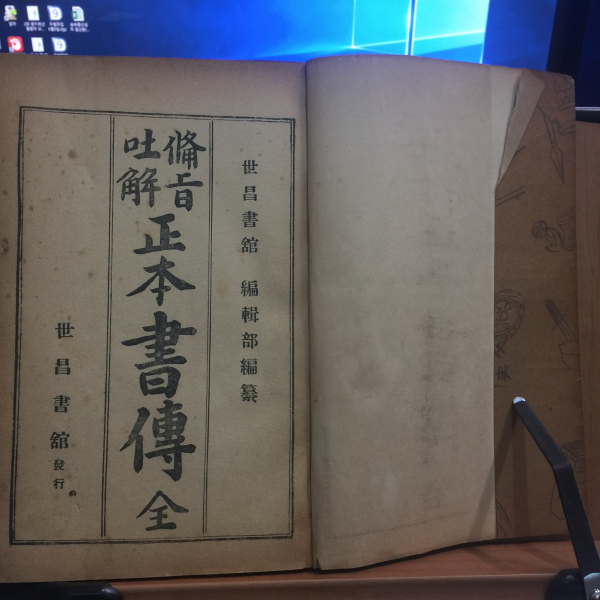 世昌書館 編輯部編纂
備旨
吐解
正本書傳 全
世昌書館 發行